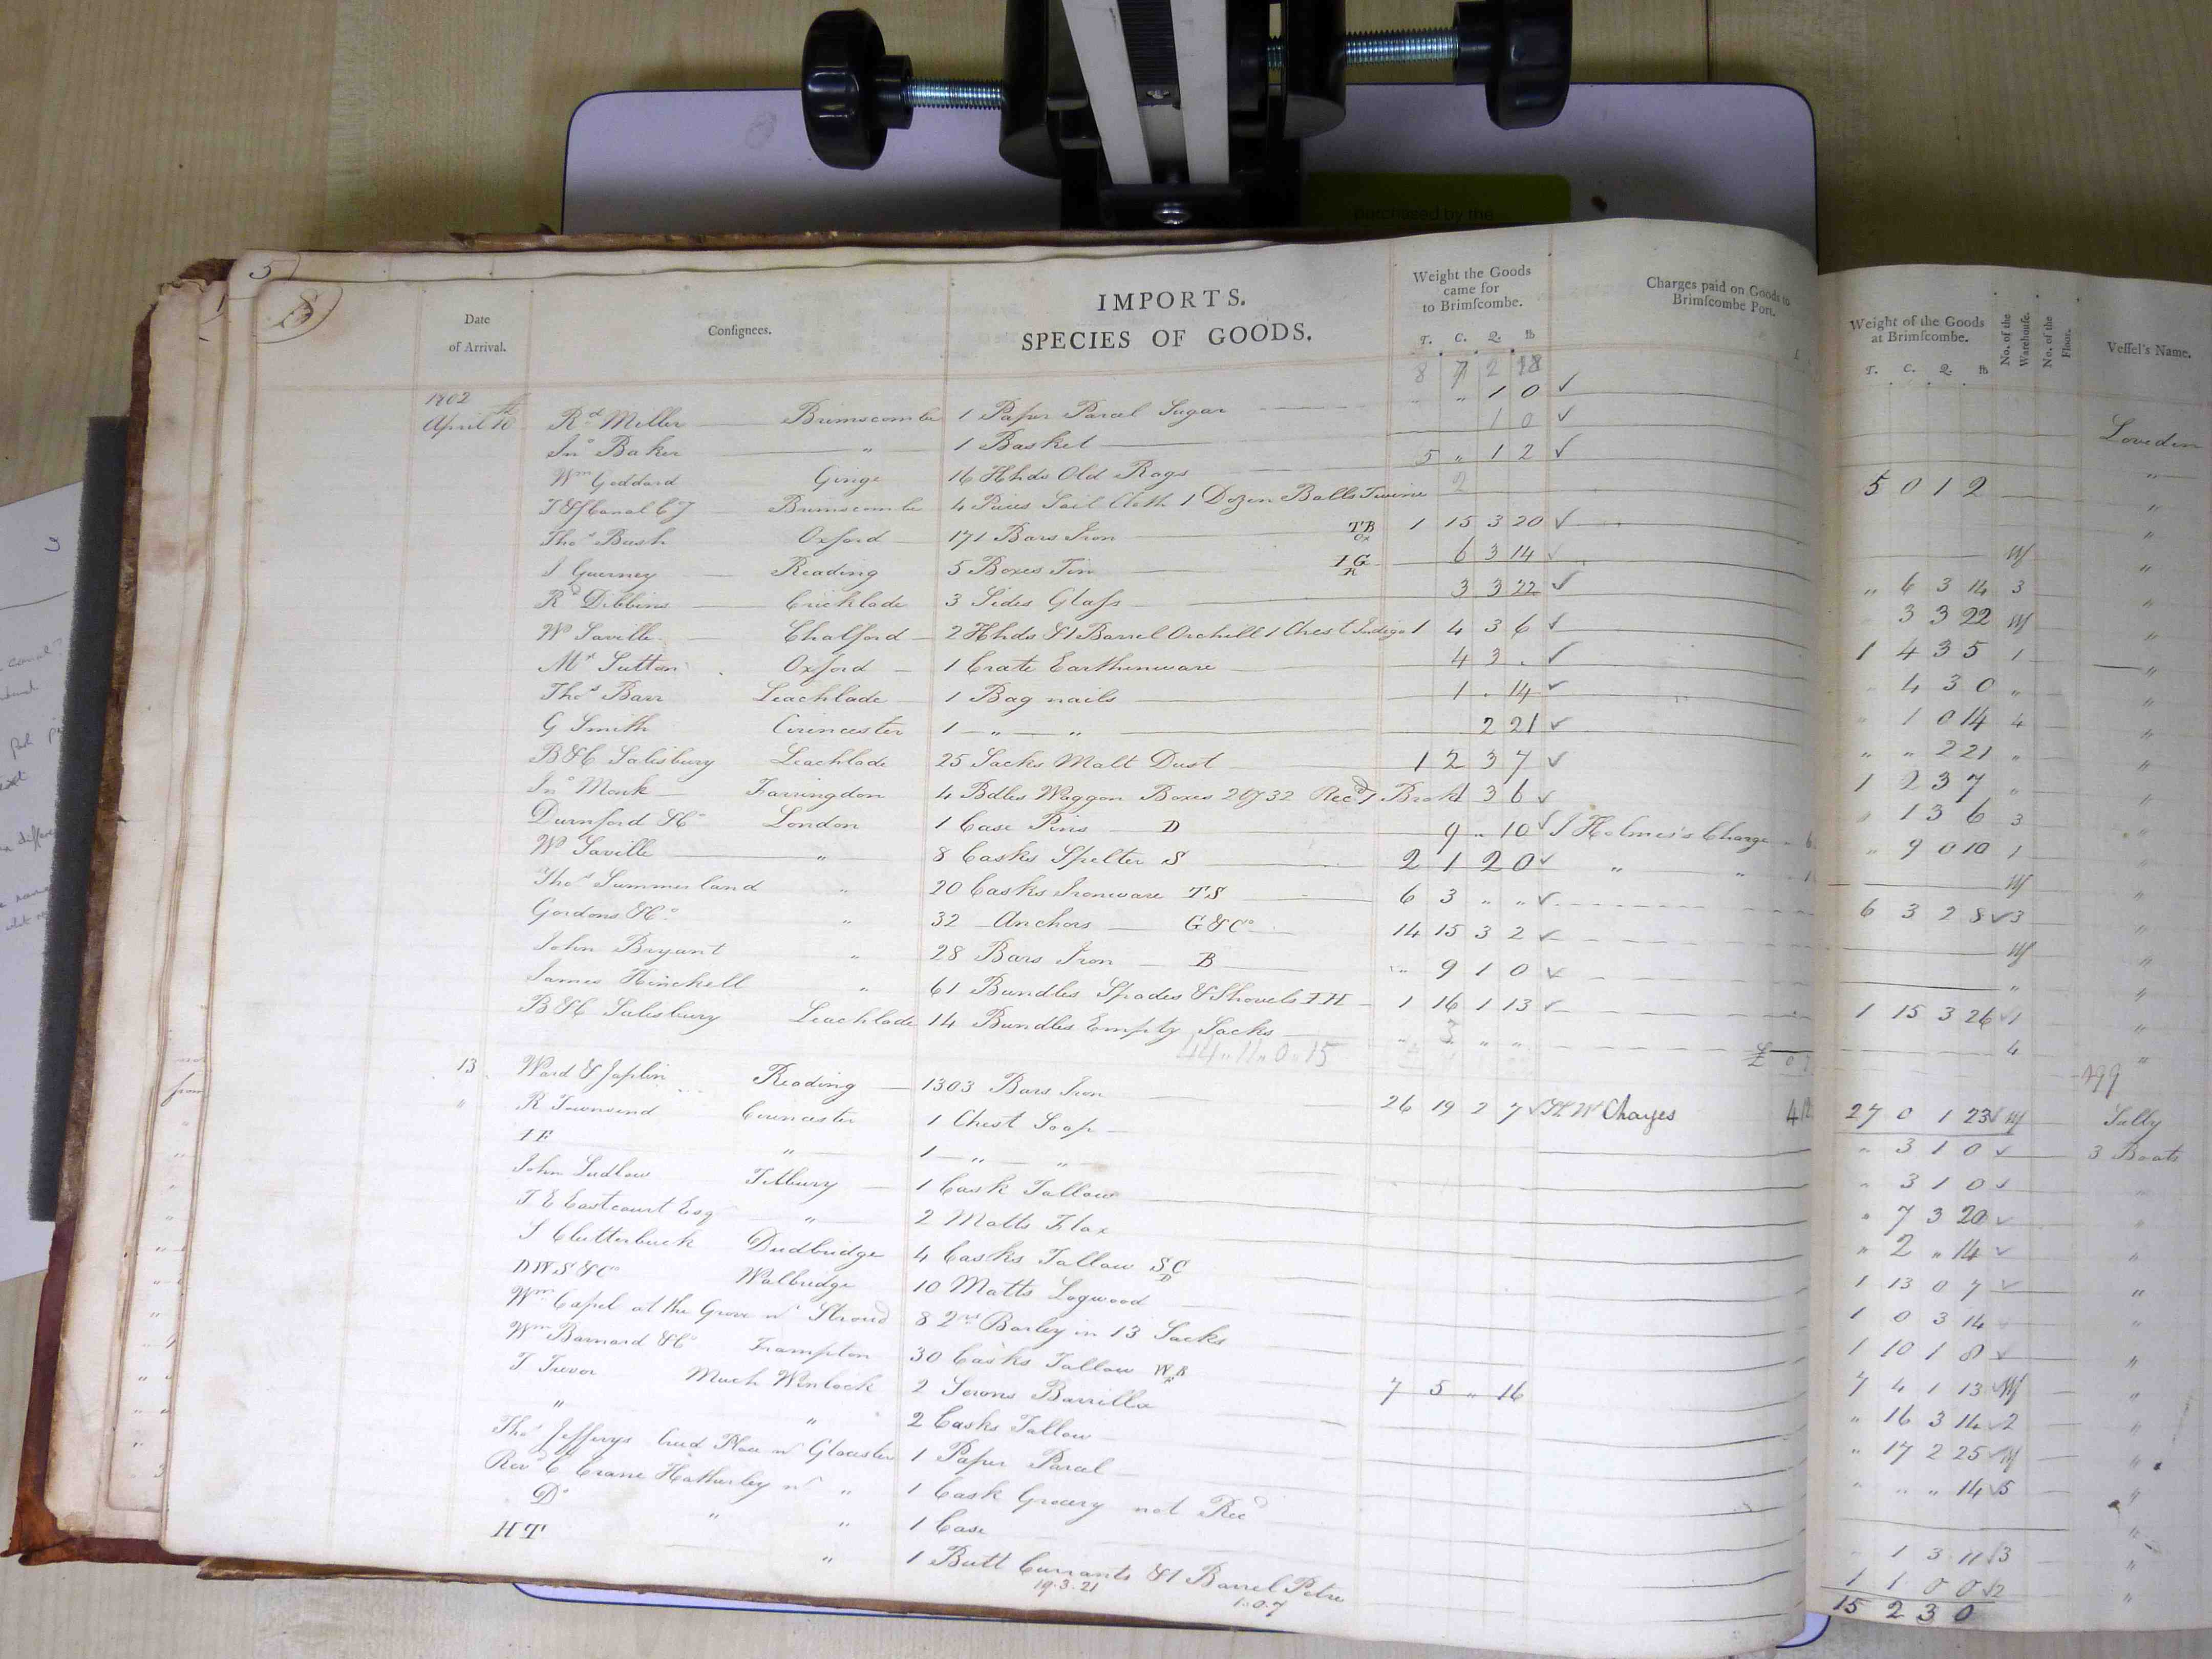 purchased by the
5
8
IMPORTS.
Date of Arrival. Consignees. SPECIES OF GOODS. Weight the Goods came for to Brimscombe. Charges paid on Goods to Brimscombe Port. Weight of the Goods at Brimscombe. No. of the Warehouse. No. of the Floor. Vessel's Name.
T. C. Q. lb T. C. Q. lb
8 7 2 18
1802
April 10th Rd Miller Brimscombe 1 Paper Parcel Sugar " " 1 0 ✓ Loveden
Jno Baker " 1 Basket 1 0 ✓ "
Wm Goddard Ginge 16 Hhds Old Rags 5 " 1 2 ✓ 5 0 1 2 "
T & S Canal C Brimscombe 4 Pieces Sail Cloth 1 Dozen Balls Twine 2 "
Thos Bush Oxford 171 Bars Iron TB Ox 1 15 3 20 ✓ Wf "
J Guerney Reading 5 Boxes Tin IG R 6 3 14 ✓ " 6 3 14 3 "
R Dibbins Cricklade 3 Sides Glass 3 3 22 ✓ 3 3 22 Wf "
Wm Saville Chalford 2 Hhds & 1 Barrel Orchill 1 Chest Indigo 1 4 3 6 ✓ 1 4 3 5 1 "
Mr Sutton Oxford 1 Crate Earthenware 4 3 . ✓ " 4 3 0 " "
Thos Barr Leachlade 1 Bag nails 1 . 14 ✓ " 1 0 14 4 "
G Smith Cirencester 1 " " 2 21 ✓ " " 2 21 " "
B & C Salisbury Leachlade 25 Sacks Malt Dust 1 2 3 7 ✓ 1 2 3 7 " "
Jno Monk Farringdon 4 Bdles Waggon Boxes 2 of 32 Recd 1 Brok 1 3 6 ✓ " 1 3 6 3 "
Durnford & Co London 1 Case Pins D 9 " 10 ✓ J Holmes's Charge 6 " 9 0 10 1 "
Wm Saville " 8 Casks Spelter S 2 1 2 0 ✓ " " 1 Wf "
Thos Summerland " 20 Casks Ironware TS 6 3 " " ✓ 6 3 2 8 ✓ 3 "
Gordons & Co " 32 Anchors G&Co 14 15 3 2 ✓ Wf "
John Bryant " 28 Bars Iron B " 9 1 0 ✓ " "
James Hinchell " 61 Bundles Spades & Shovels IH 1 16 1 13 ✓ 1 15 3 26 ✓ 1 "
B & C Salisbury Leachlade 14 Bundles Empty Sacks " 3 " " 4 "
44 " 11 " 0 " 15 £ 0 499
13 Ward & Japlin Reading 1303 Bars Iron 26 19 2 7 ✓ H W Charges 4 27 0 1 23 ✓ Wf Sally
" R Townsend Cirencester 1 Chest Soap " 3 1 0 ✓ 3 Boats
IE " 1 " " " 3 1 0 ✓ "
John Ludlow Tetbury 1 Cask Tallow " 7 3 20 ✓ "
T E Eastcourt Esq " 2 Matts Flax " 2 " 14 ✓ "
S Clutterbuck Dudbridge 4 Casks Tallow SC D 1 13 0 7 ✓ "
DWS & Co Walbridge 10 Matts Logwood 1 0 3 14 "
Wm Capel at the Grove nr Stroud 8 Qrs Barley in 13 Sacks 1 10 1 8 ✓ "
Wm Barnard & Co Frampton 30 Casks Tallow WB F 7 5 " 16 7 4 1 13 ✓ Wf "
T Trevor Much Wenlock 2 Serons Barrilla " 16 3 14 ✓ 2 "
" " 2 Casks Tallow " 17 2 25 ✓ Wf "
Thos Jefferys Place nr Glocester 1 Paper Parcel " " " 14 ✓ 5 "
Revd C Crane Hatherley nr " 1 Cask Grocery not Recd "
Do " " 1 Case " 1 3 11 ✓ 3 "
HT " 1 Butt Currants & 1 Barrel Petre 1 1 0 0 ✓ 2 "
19.3.21 1.0.7 15 2 3 0